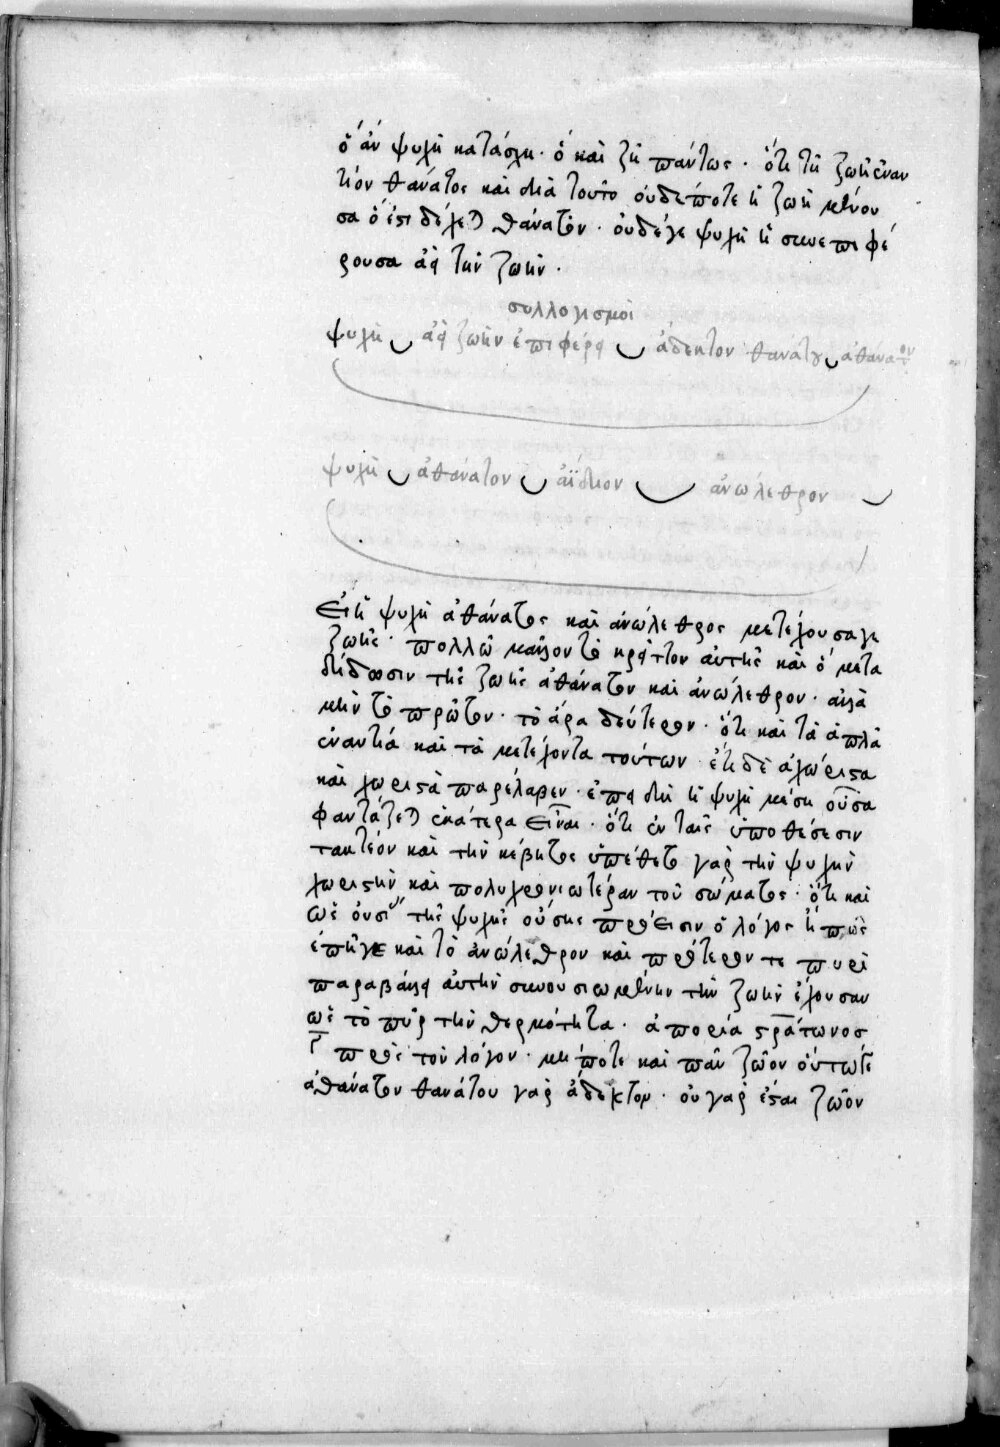 ὃ ἂν ψυχὴ κατάσχη· ὃ καὶ ζῆ πάντως· ὅτι τῆ ζωῆ ἐναν
τίον θάνατος καὶ διὰ τοῦτο οὐδέποτε ἡ ζωὴ μένου
σα ὅ ἐστι δέχεται θάνατον· οὐδέ γε ψυχὴ ἡ συνεπιφέ
ρουσα ἀεὶ τὴν ζωήν·
συλλογισμοί
ψυχὴ ἀεὶ ζωὴν ἐπιφέρει ἄδεκτον θανάτου ἀθάνατον
ψυχὴ ἀθάνατον ἀΐδιον ἀνώλεθρον
Εἰ ἡ ψυχὴ ἀθάνατος καὶ ἀνώλεθρος μετέχουσά γε
ζωῆς· πολλῶ μᾶλλον τὸ κρεῖττον αὐτῆς καὶ ὃ μετα
δίδωσιν τῆς ζωῆς ἀθάνατον καὶ ἀνώλεθρον· ἀλλὰ
μὴν τὸ πρῶτον· τὸ ἄρα δεύτερον· ὅτι καὶ τὰ ἁπλᾶ
ἐναντία καὶ τὰ μετέχοντα τούτων ἔτι δὲ ἀχώριστα
καὶ χωριστὰ παρέλαβεν· ἐπειδὴ ἡ ψυχὴ μέση οὖσα
φαντάζεται ἑκάτερα εἶναι· ὅτι ἐν ταῖς ὑποθέσεσιν
τακτέον καὶ τὴν κέβητος ὑπέθετο γὰρ τὴν ψυχὴν
χωριστὴν καὶ πολυχρονιωτέραν τοῦ σώματος· ὅτι καὶ
ὡς οὐσίας τῆς ψυχῆς οὔσης πρόεισιν ὁ λόγος ἢ πῶς
ἐπῆγε καὶ τὸ ἀνώλεθρον καὶ πρότερόν τε πυρὶ
παραβάλλει αὐτὴν συνουσιωμένην τὴν ζωὴν ἔχουσαν
ὡς τὸ πῦρ τὴν θερμότητα· ἀπορία στράτωνος
πρὸς τὸν λόγον· μήποτε καὶ πᾶν ζῶον οὕτως
ἀθάνατον θανάτου γὰρ ἄδεκτον· οὐ γὰρ ἔσται ζῶον